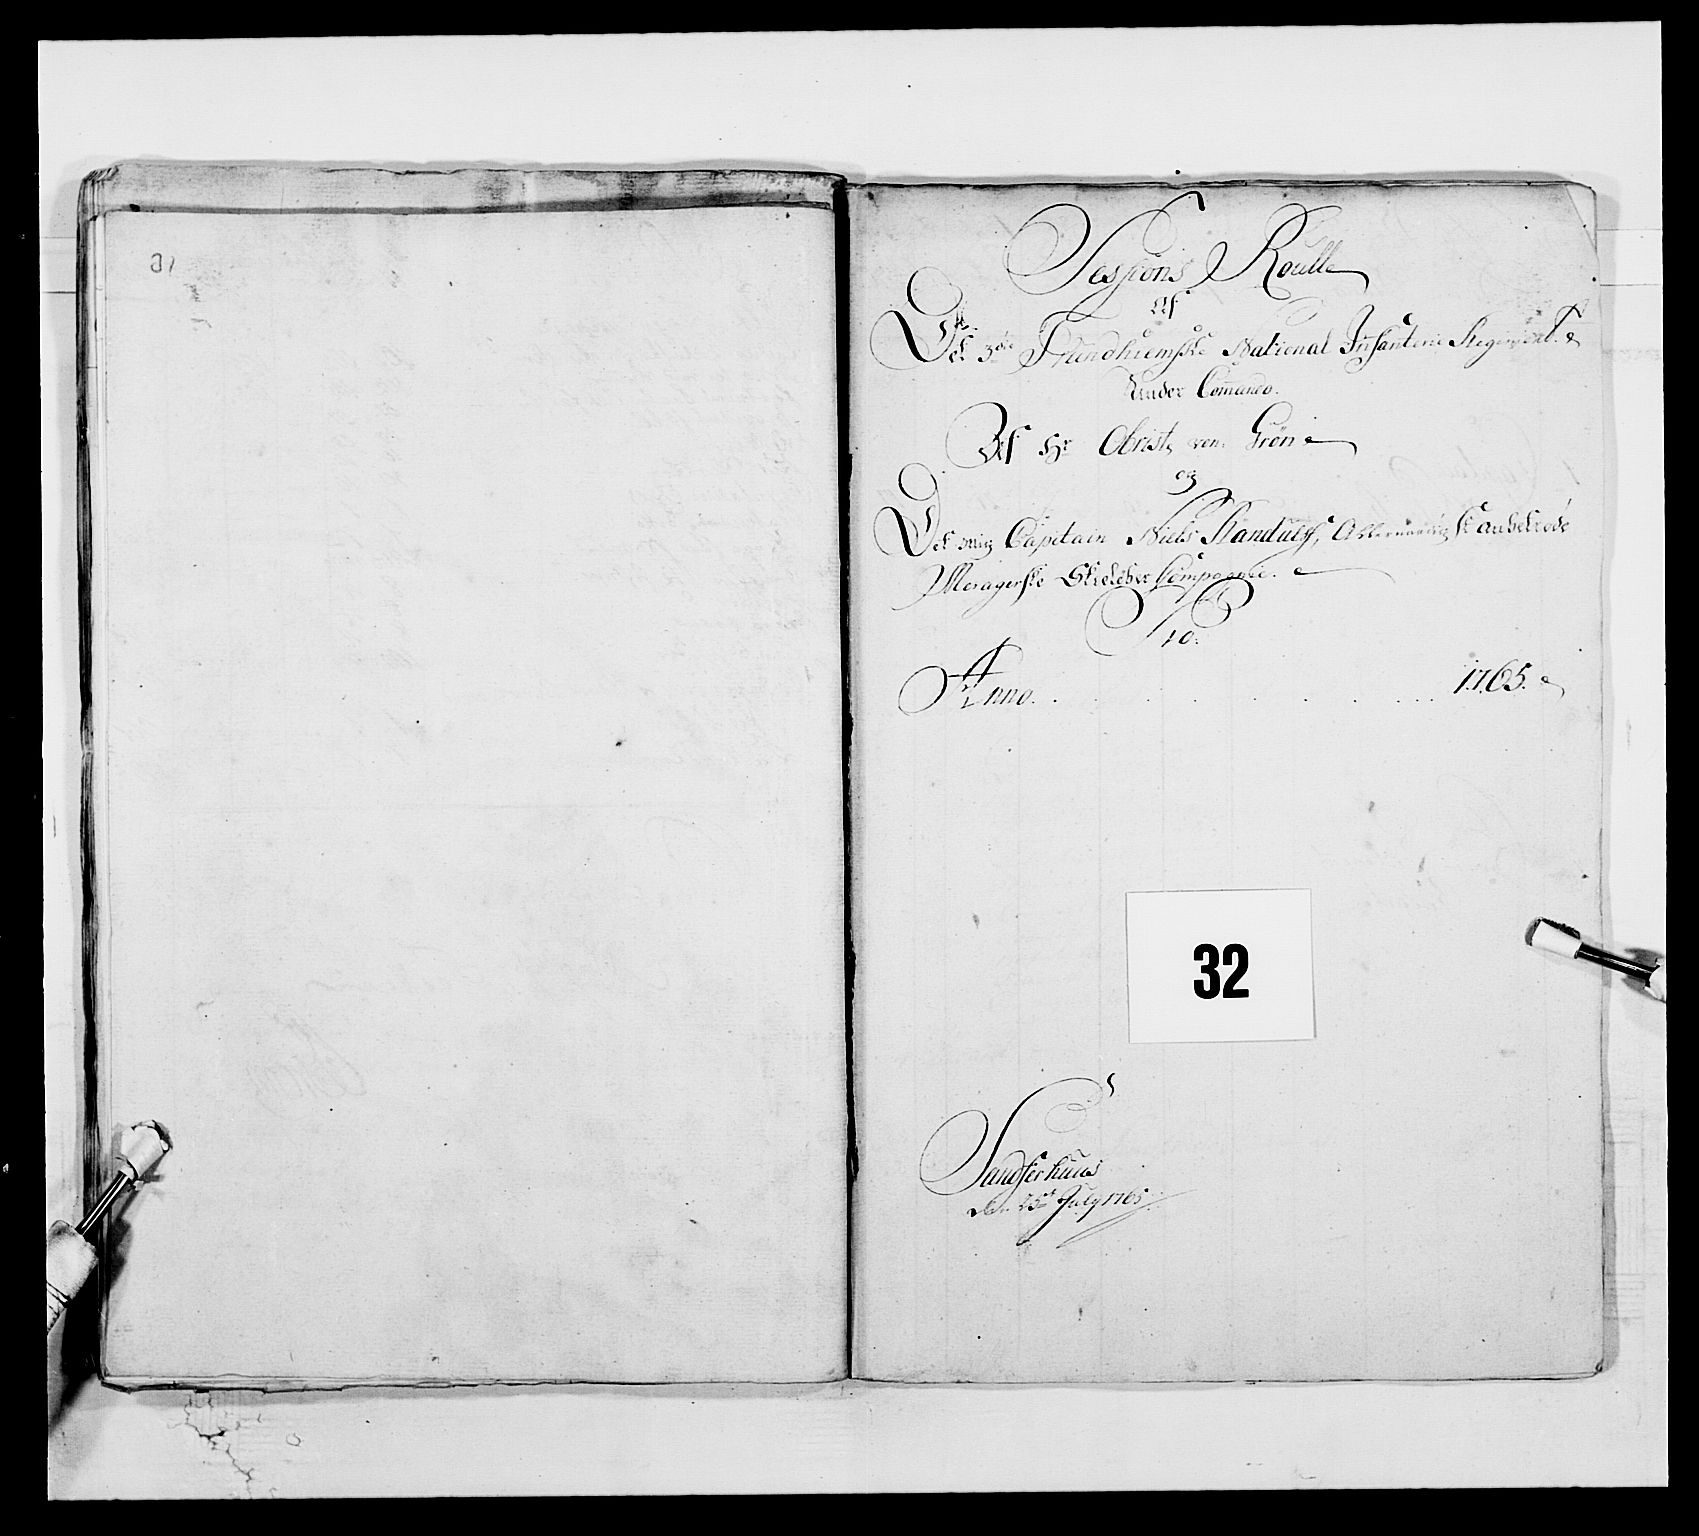 Sessions Roulle
Af
Det 3die Trundhiemske National Infanterie Regiment.
Under Comando.
Af Hr Obrist von Grøn
og
Det mig Capitain Niels Randulf, Allernaadigst anbetroede
Meragerske Skieløber Compagnie.
Pro.
Anno. . . . . . . . . 1765.
32
Sandferhuus
den 25de July 1765.